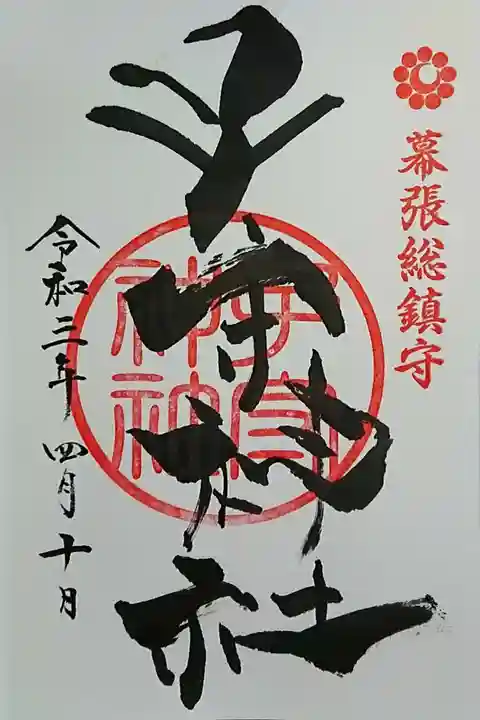 幕張総鎮守
子守神社
子守神社
令和三年 四月 十日